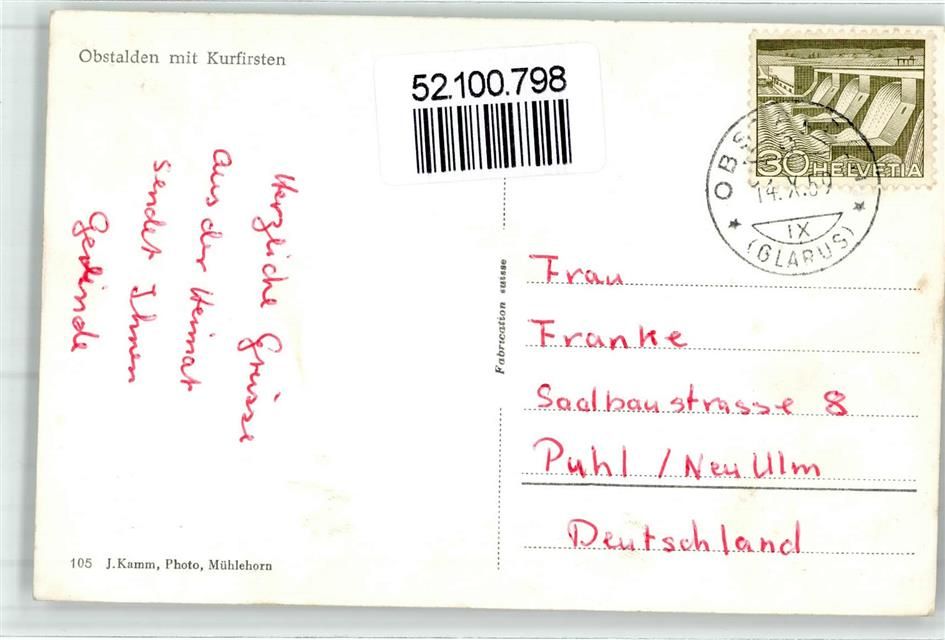 Obstalden mit Kurfirsten
52.100.798
Herzliche Grüsse
Aus der Heimat
sendet Ihnen
Gedinde
Fabrication suisse
30 HELVETIA
OBSTALDEN
14.X.69
IX
(GLARUS)
Frau
Franke
Saalbaustrasse 8
Puhl / Neu Ulm
Deutschland
105 J. Kamm, Photo, Mühlehorn